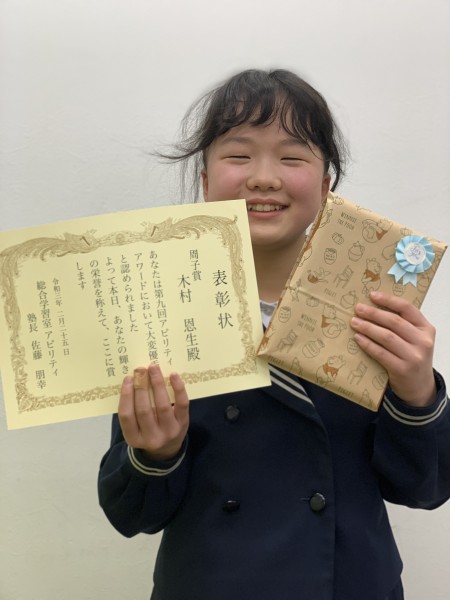 表彰状
周子賞
木村 恩生殿
あなたは第九回アビリティ
アワードにおいて大変優
と認められました
よって本日、あなたの輝き
の栄誉を称えて、ここに賞
します
令和三年 二月二十五日
総合学習室 アビリティ
塾長 佐藤 朋幸
WINNIE
THE POOH